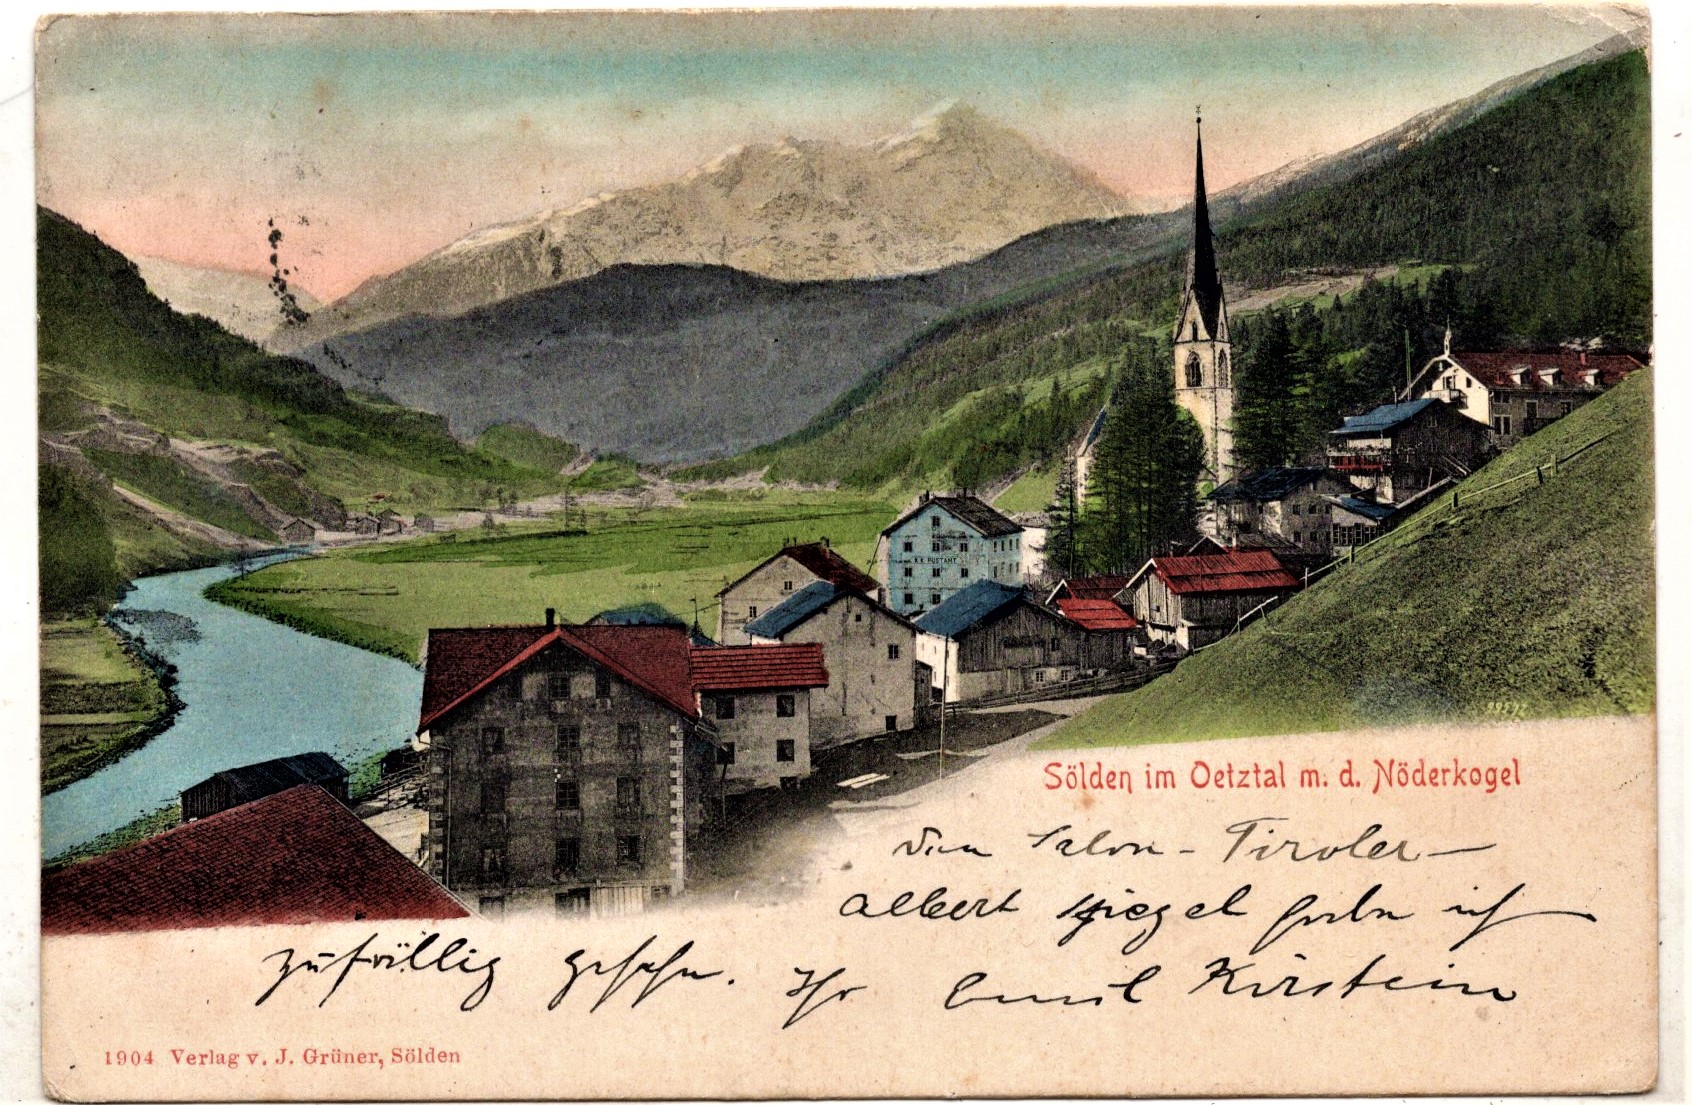 K.K. POSTAMT
99292
Sölden im Oetztal m. d. Nöderkogel
Den Salon-Tiroler—
Albert Spiegel habe ich
zufällig gesehen. Ihr Emil Kirstein
1904 Verlag v. J. Grüner, Sölden